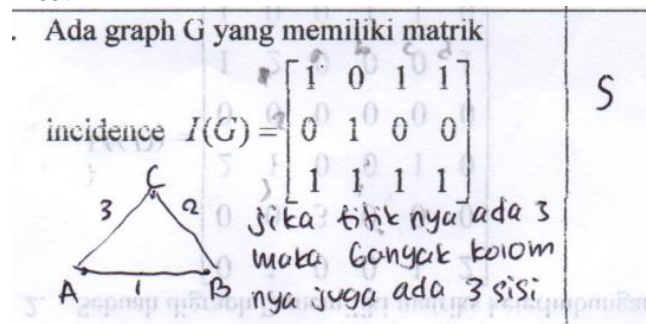 . Ada graph G yang memiliki matrik
incidence I(G) = [1 0 1 1
0 1 0 0
1 1 1 1]
S
C
3 2
A 1 B
jika titik nya ada 3
maka banyak kolom
nya juga ada 3 sisi